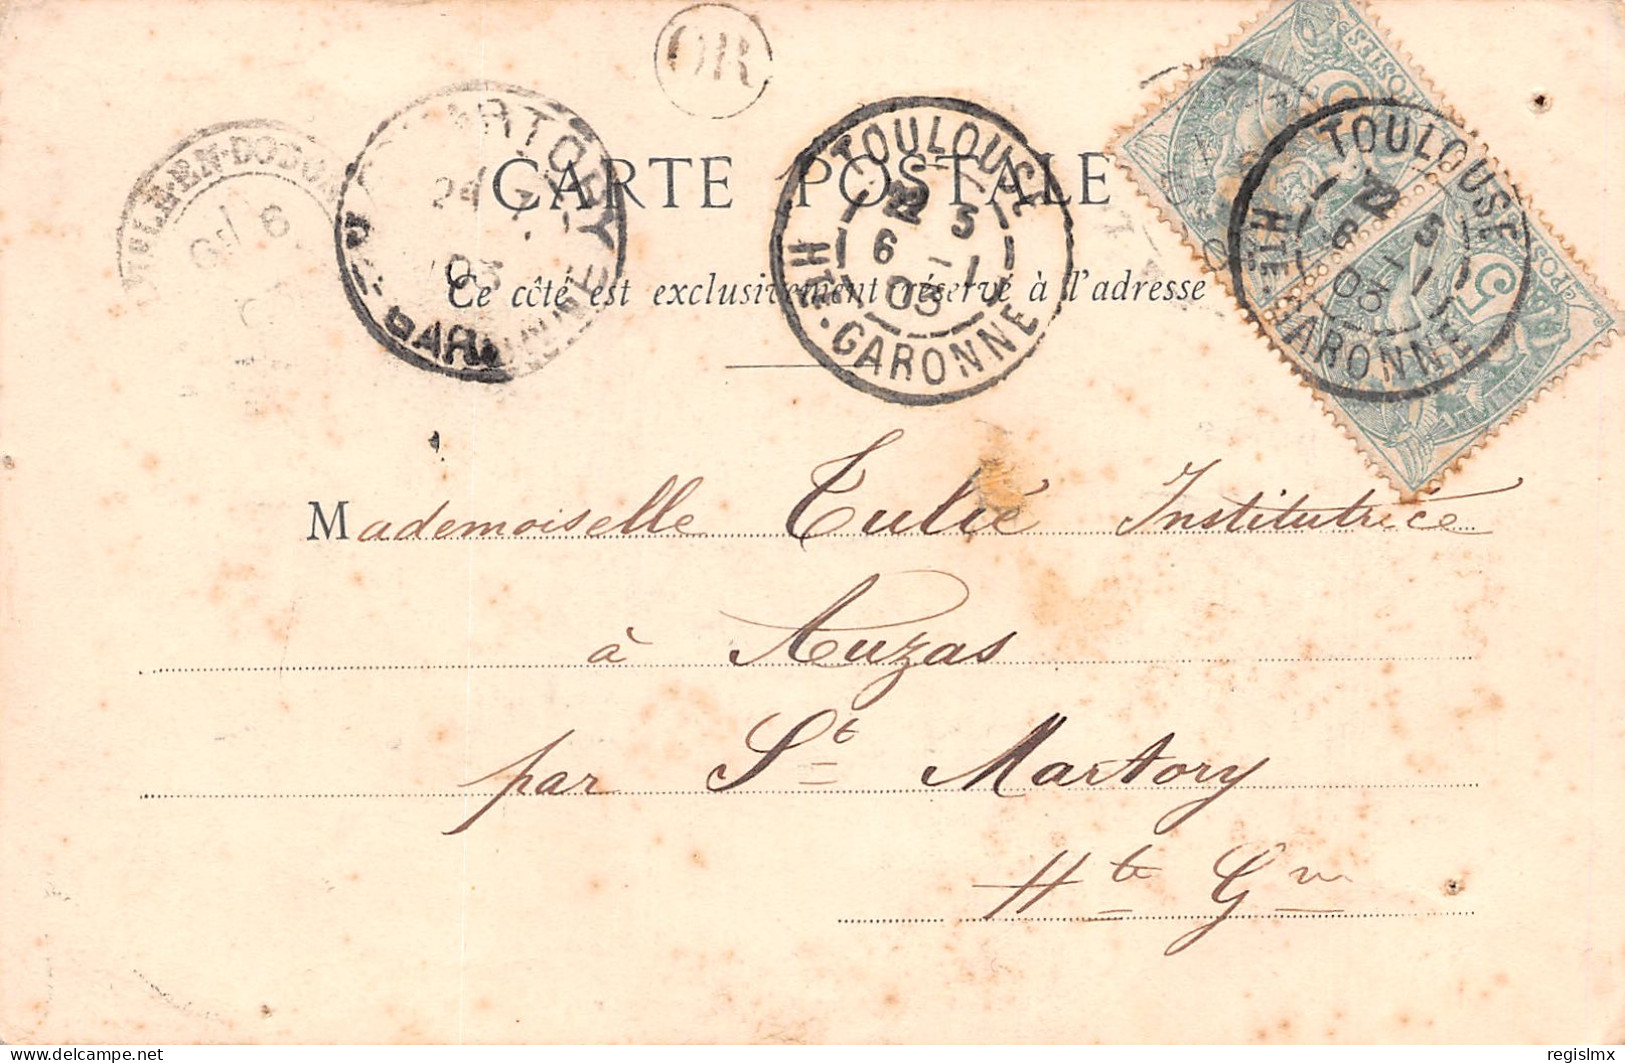 OR
ISLE-EN-DODON
MARTORY
24
03
GARONNE
CARTE POSTALE
TOULOUSE
22 5
6 -1
03
HTE-GARONNE
TOULOUSE
22 5
6 -1
03
HTE-GARONNE
5
POSTES
5
POSTES
Ce côté est exclusivement réservé à l'adresse
Mademoiselle Tulié Institutrice
à Auzas
par St Martory
Hte Gne
delcampe.net
regislmx